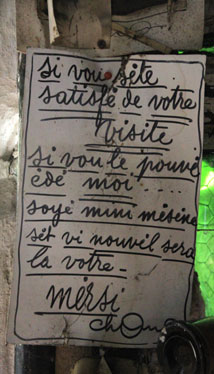 si vou sète
satisfè de votre
Visite
si vou le pouvé
èdé moi.....
soyé mini mésène
sèt vi nouvèl sera
la votre_
mèrsi